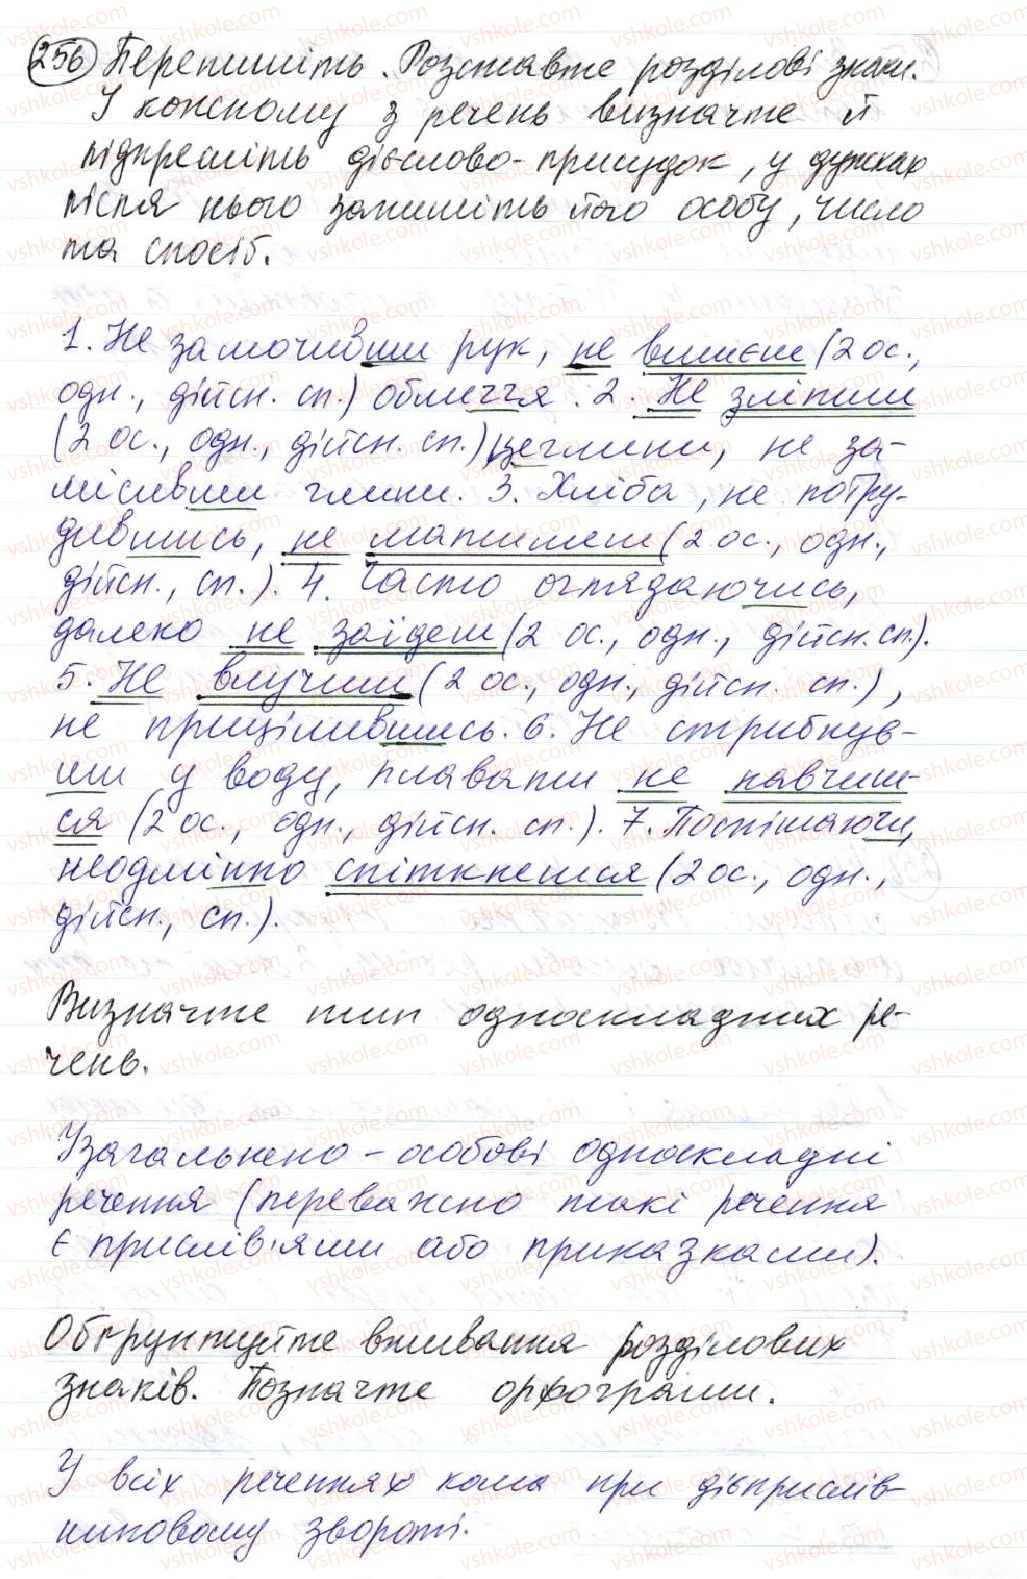 256 Перепишіть. Розставте розділові знаки.
У кожному з речень визначте й
підкресліть дієслово-присудок, у дужках
після нього запишіть його особу, число
та спосіб.
1. Не замочивши рук, не вимиєш (2 ос.,
одн., дійсн. сп.) обличчя. 2. Не зліпиш
(2 ос., одн., дійсн. сп.) цеглини, не за-
місивши глини. 3. Хліба, не потру-
дившись, не матимеш (2 ос., одн.,
дійсн., сп.). 4. Часто оглядаючись,
далеко не зайдеш (2 ос., одн., дійсн. сп.).
5. Не влучиш (2 ос., одн., дійсн. сп.),
не прицілившись. 6. Не стрибнув-
ши у воду, плавати не навчиш-
ся (2 ос., одн., дійсн. сп.). 7. Поспішаючи,
неодмінно спіткнешся (2 ос., одн.,
дійсн., сп.).
Визначте тип односкладних ре-
чень.
Узагальнено-особові односкладні
речення (переважно такі речення
є прислів'ями або приказками).
Обґрунтуйте вживання розділових
знаків. Позначте орфограми.
У всіх реченнях кома при дієприслів-
никовому звороті.